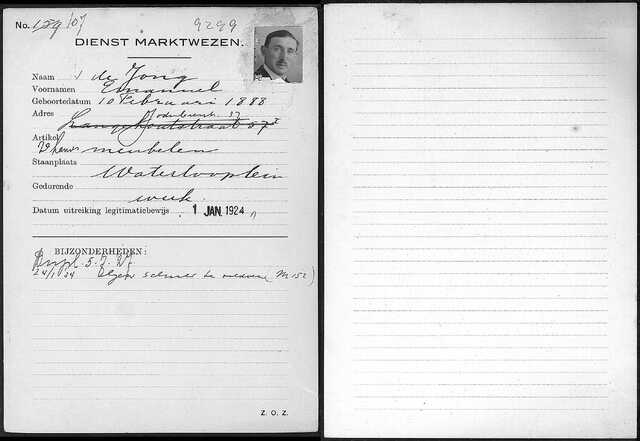 No. 139/07 9299
DIENST MARKTWEZEN.
Naam de Jong
Voornamen Emanuel
Geboortedatum 10 Februari 1888
Jodenbreestr. 37
Adres Lange Houtstraat 57 I
Artikel
meubelen
Staanplaats Waterlooplein
Gedurende week.
Datum uitreiking legitimatiebewijs 1 JAN. 1924
BIJZONDERHEDEN:
Dupl. 5.7.27
24/1 34 (M 152)
Z. O. Z.